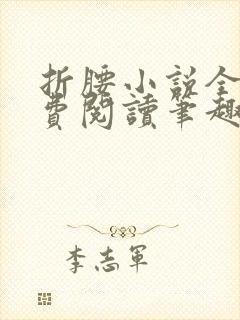 折腰小说全
費閱讀筆趣
李志軍